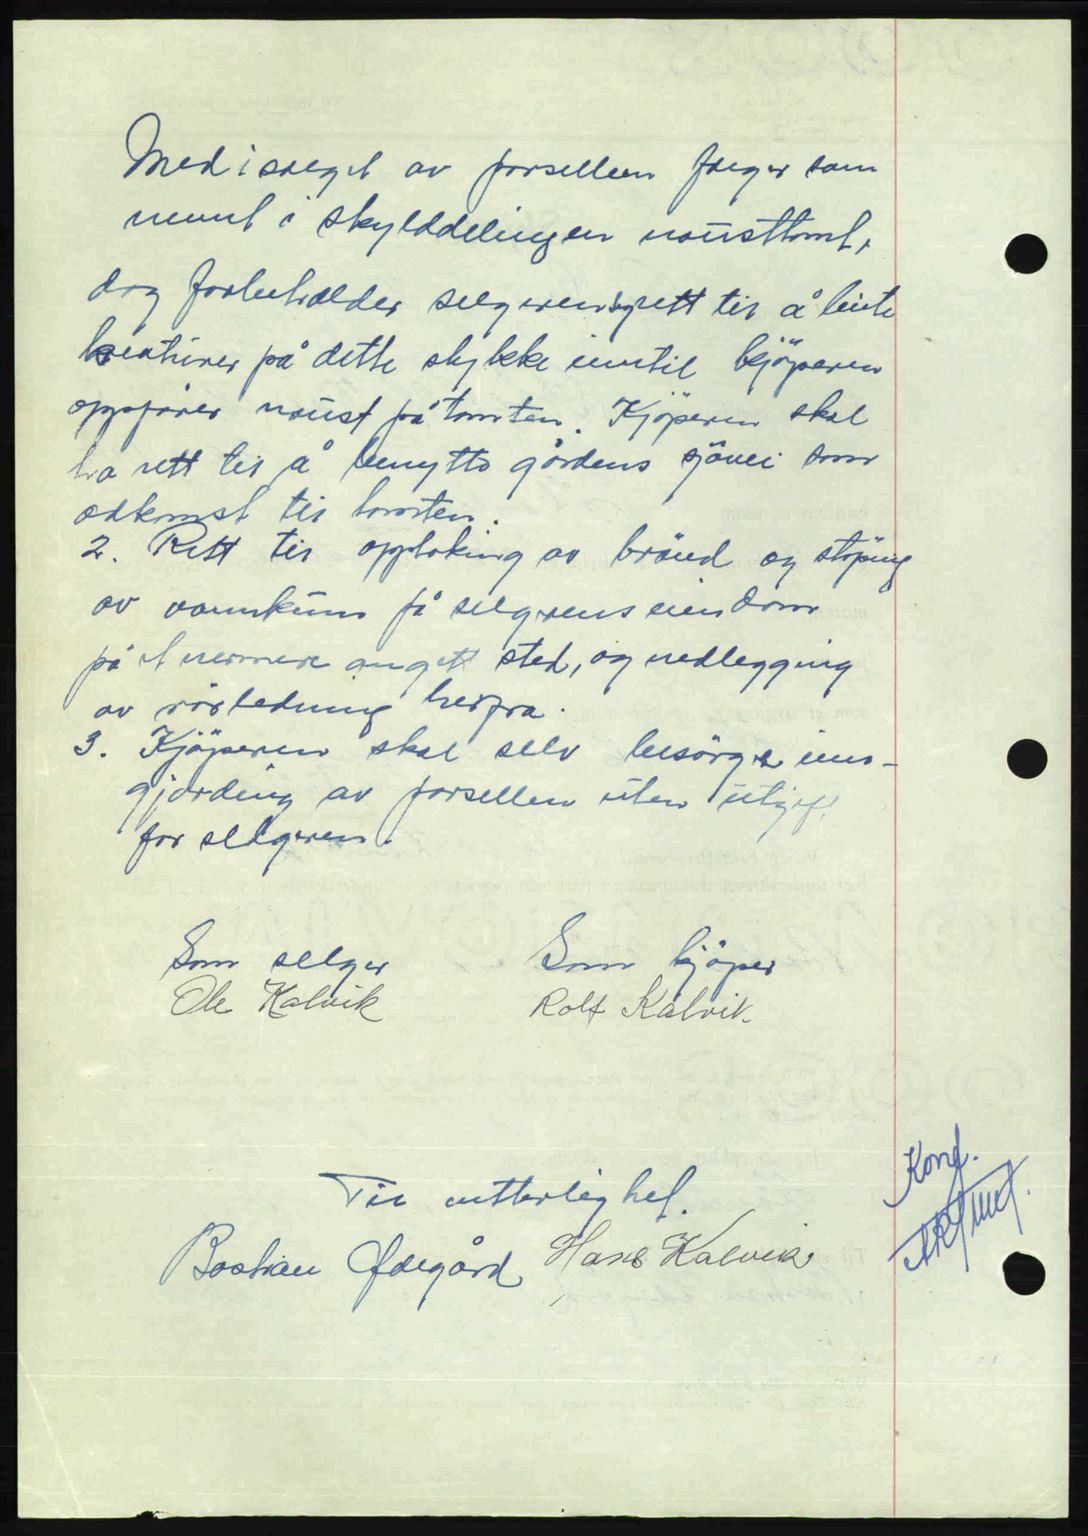 Med i salget av parsellen følger som
nevnt i skylddelingen nausttomt,
dog forbeholder selgeren sig rett til å beite
kreaturer på dette stykke inntil kjöperen
oppfører naust på tomten. Kjöperen skal
ha rett til å benytte gårdens sjövei som
adkomst til tomten.
2. Rett til opptaking av brönd og stöping
av vannkum på selgerens eiendom
på et nermere anget sted, og nedlegging
av rörledning herfra.
3. Kjöperen skal selv besörge inn-
gjerding av parsellen uten utgift
for selgeren.
Som selger Som kjöper
Ole Kalvik Rolf Kalvik
Til vitterlighet.
Bastian Ødegård Hans Kalvik
Konf.